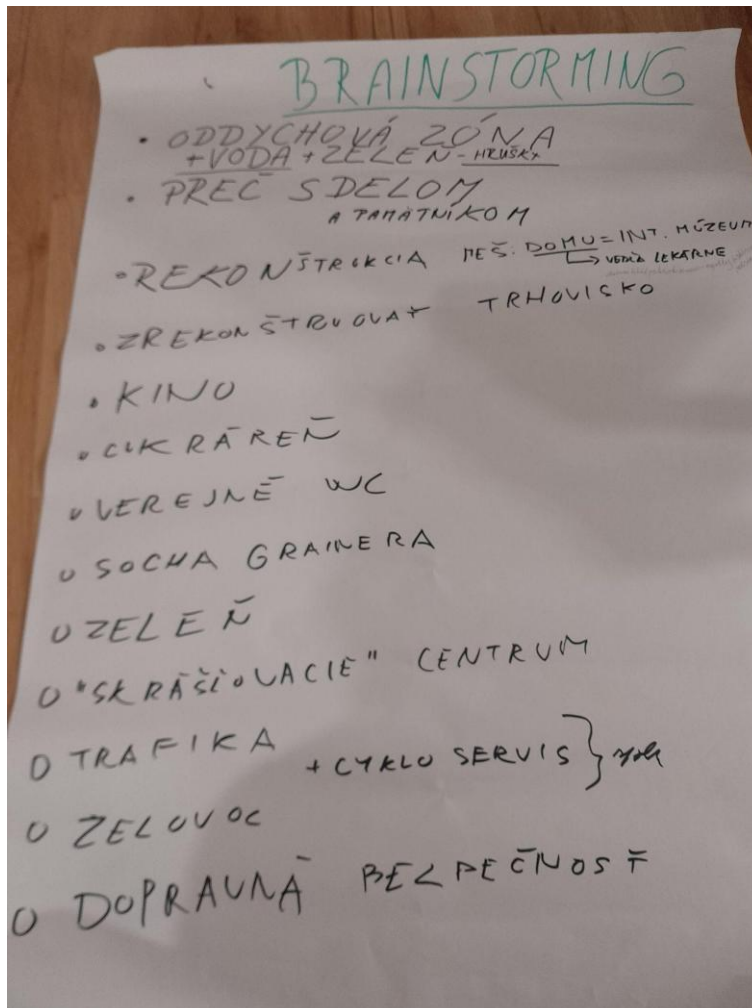 BRAINSTORMING
• ODDYCHOVÁ ZÓNA
+VODA + ZELEŇ - HRUŠKY
• PREČ S DELOM
A PAMÄTNÍKOM
• REKONŠTRUKCIA MEŠ. DOMU = INT. MÚZEUM
↳ VEDĽA LEKÁRNE
• ZREKONŠTRUOVAŤ TRHOVISKO
• KINO
• CUKRÁREŇ
• VEREJNÉ WC
• SOCHA GRAINERA
• ZELEŇ
• "SKRÁŠĽOVACIE" CENTRUM
• TRAFIKA + CYKLO SERVIS }
• ZELOVOC
• DOPRAVNÁ BEZPEČNOSŤ